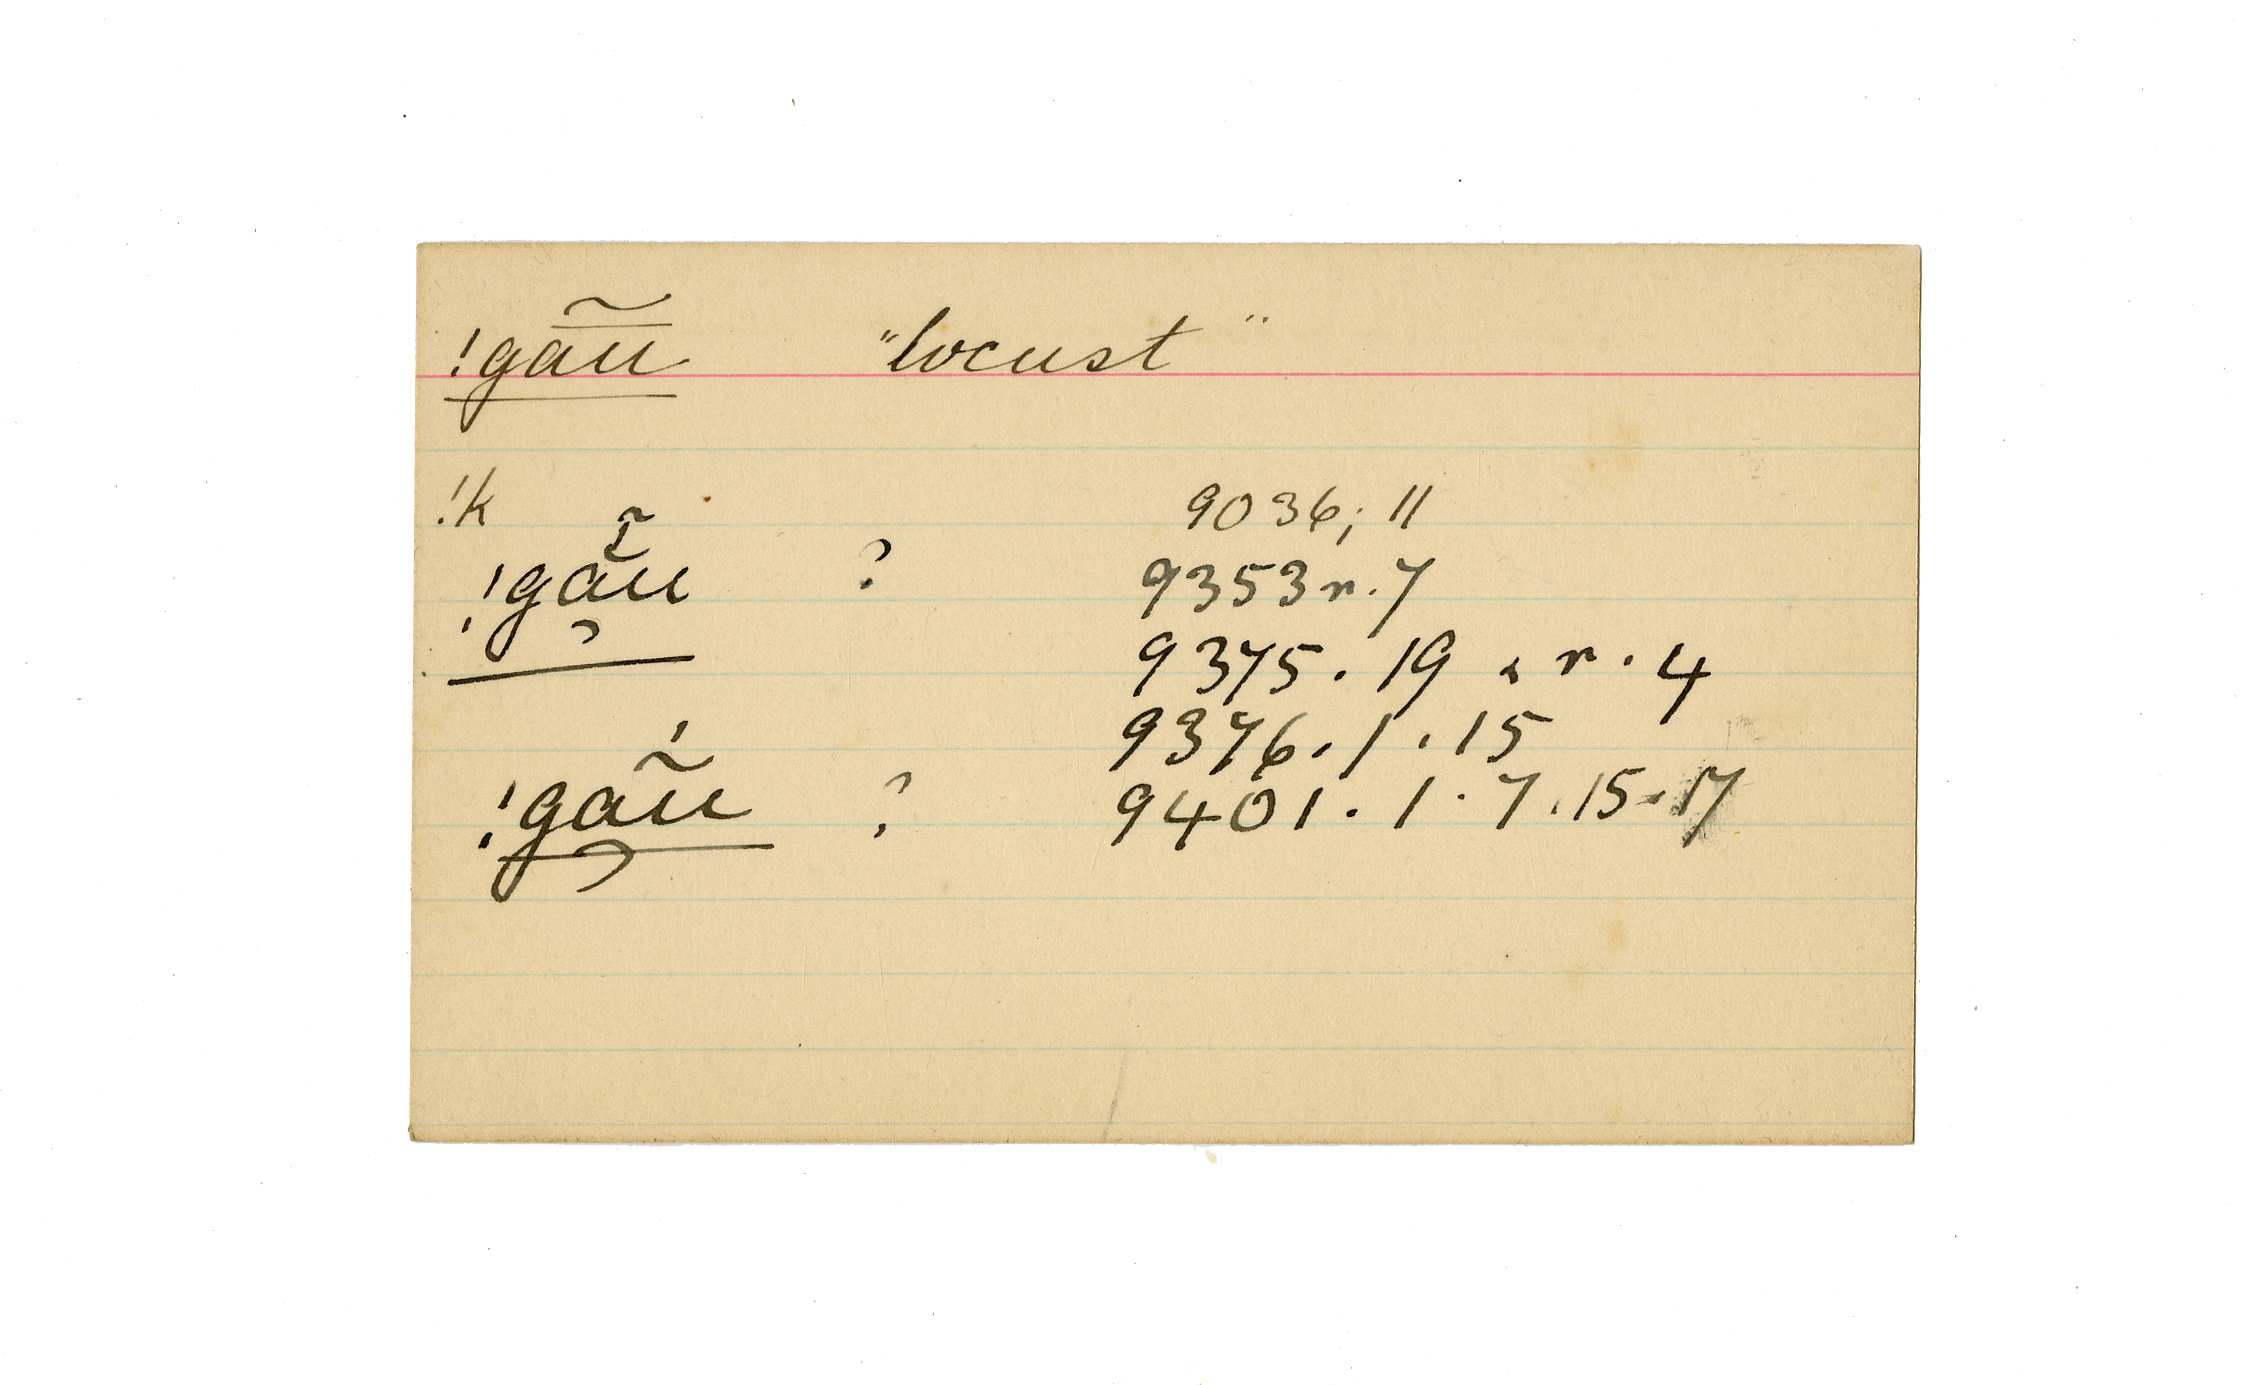 !gā̃ũ "locust"
!k 9036; 11
!gã́u ? 9353 r. 7
9375. 19. r. 4
9376. 1. 15
!gãú ? 9401. 1. 7. 15. 17